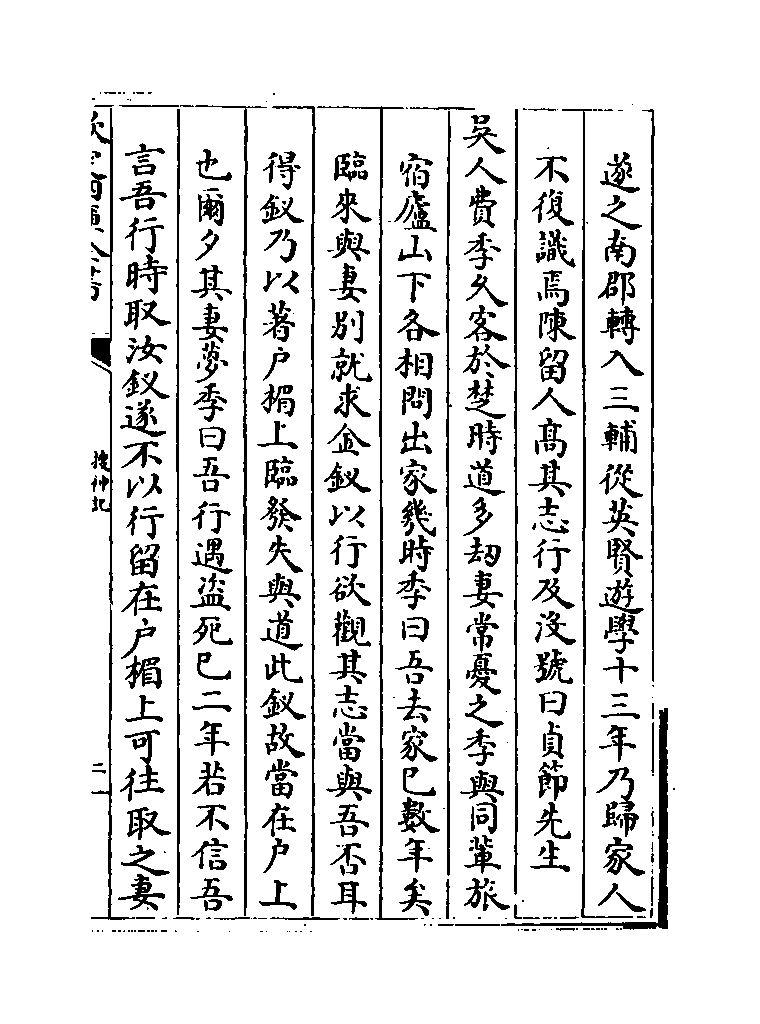 遂之南郡轉入三輔從英賢遊學十三年乃歸家人
不復識焉陳留人髙其志行及沒號曰貞節先生
吳人費季久客於楚時道多刼妻常憂之季與同輩旅
宿廬山下各相問出家幾時季曰吾去家已數年矣
臨來與妻别就求金釵以行欲觀其志當與吾否耳
得釵乃以著户楣上臨發失與道此釵故當在户上
也爾夕其妻夢季曰吾行遇盜死已二年若不信吾
言吾行時取汝釵遂不以行留在户楣上可往取之妻
搜神記